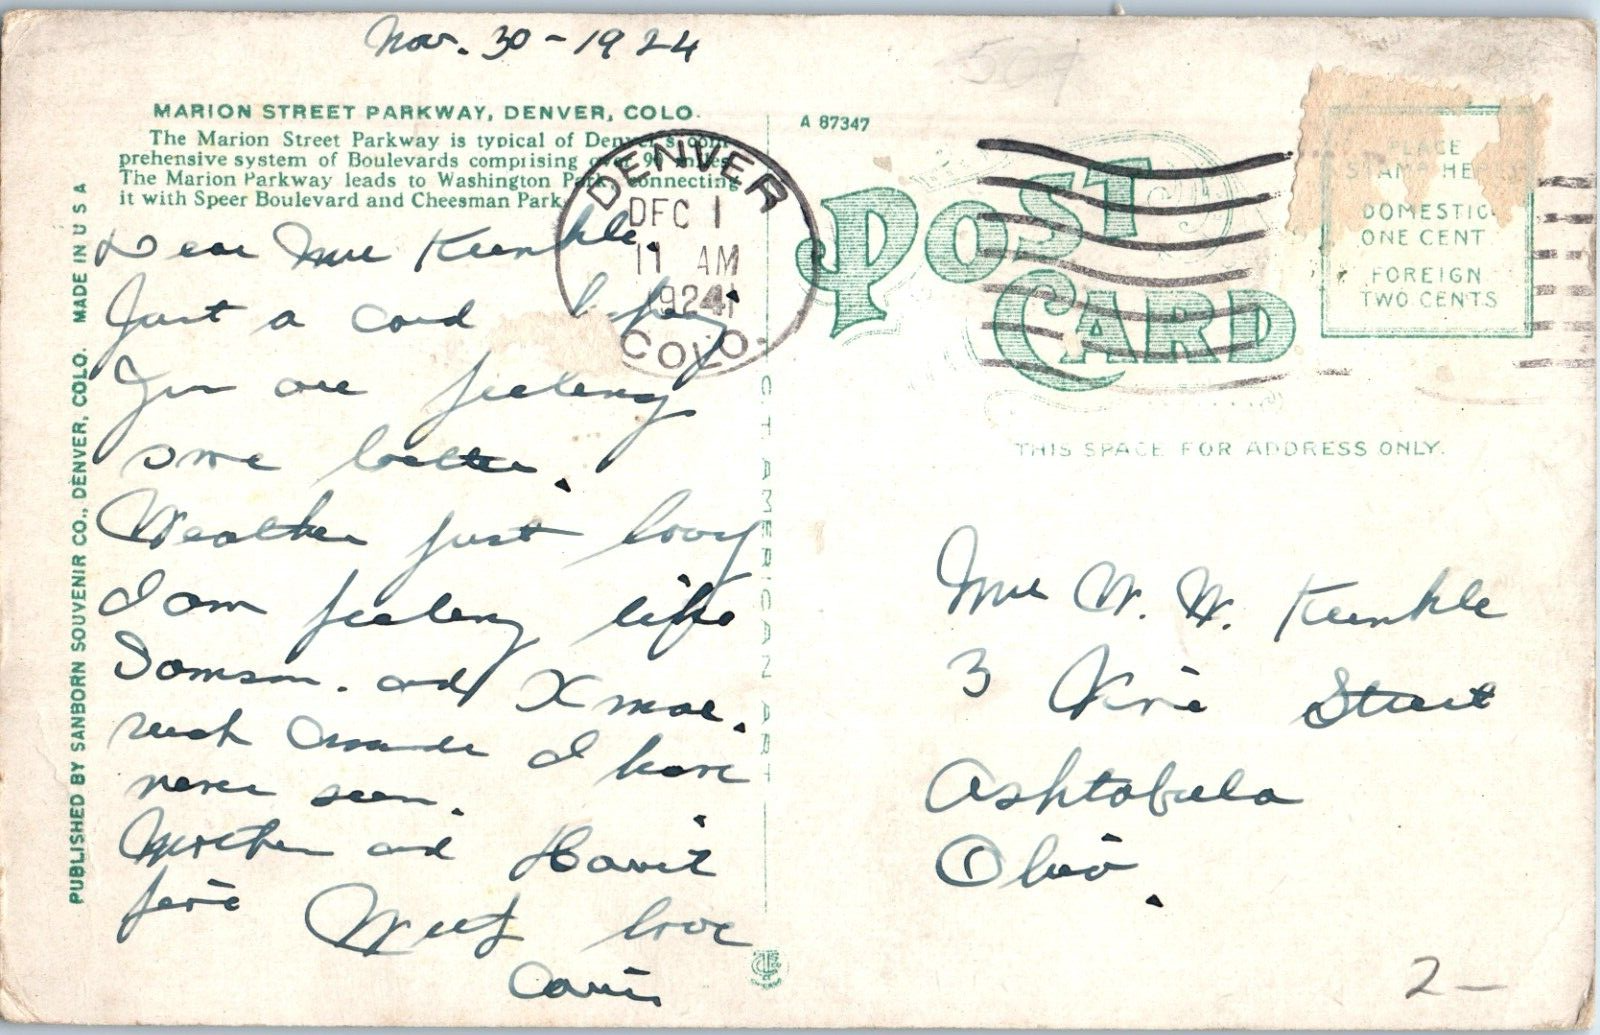 Nov. 30 - 1924
507
MARION STREET PARKWAY, DENVER, COLO.
The Marion Street Parkway is typical of Denver's com-
prehensive system of Boulevards comprising over 90 miles.
The Marion Parkway leads to Washington Park, connecting
it with Speer Boulevard and Cheesman Park.
DENVER
DEC 1
11 AM
1924
COLO.
Dear Mrs
Just a card
You are feeling
some better.
Weather just lovly
I am feeling like
and Xmas.
such I have
never seen.
Mother and
fine With love
PUBLISHED BY SANBORN SOUVENIR CO., DENVER, COLO. MADE IN U S A
C. T. AMERICAN ART
A 87347
POST
CARD
PLACE
STAMP HERE
DOMESTIC
ONE CENT
FOREIGN
TWO CENTS
THIS SPACE FOR ADDRESS ONLY.
Mrs W. W.
3 Vine Street
Ashtabula
Ohio.
2-